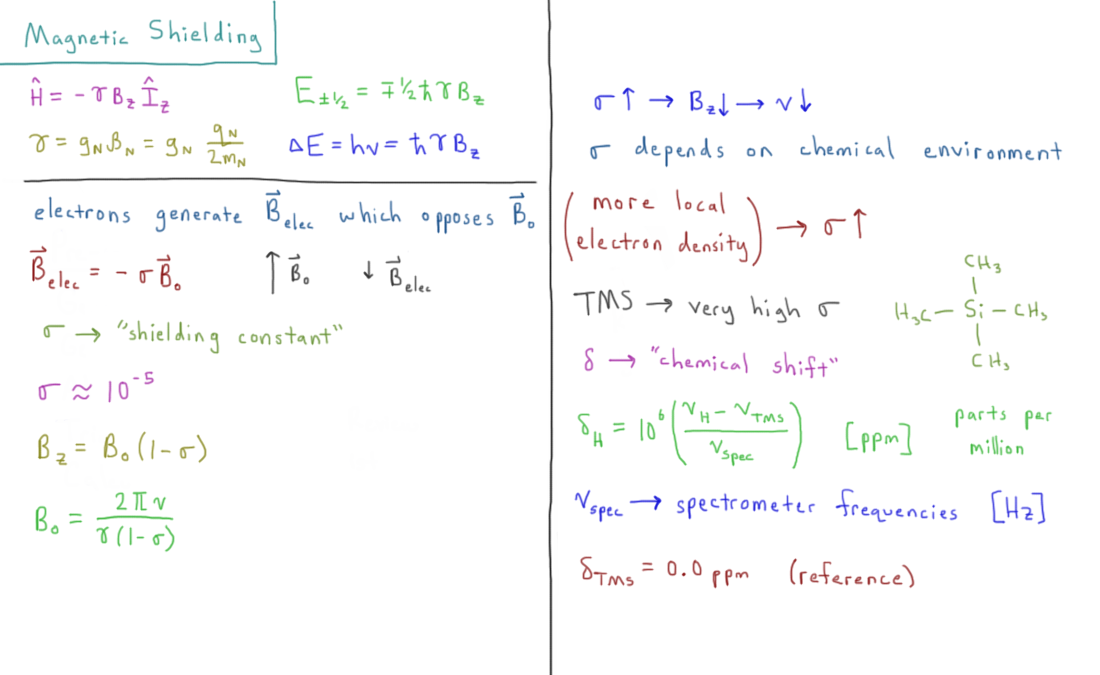 Magnetic Shielding
Ĥ = - γ B_z Î_z
E_±½ = ∓½ ħ γ B_z
γ = g_N β_N = g_N q_N / 2m_N
ΔE = hν = ħ γ B_z
electrons generate B⃗_elec which opposes B⃗_0
B⃗_elec = - σ B⃗_0
↑ B⃗_0 ↓ B⃗_elec
σ → "shielding constant"
σ ≈ 10^-5
B_z = B_0 (1-σ)
B_0 = 2πν / γ(1-σ)
σ↑ → B_z↓ → ν↓
σ depends on chemical environment
(more local
electron density) → σ↑
TMS → very high σ
CH₃
H₃C – Si – CH₃
CH₃
δ → "chemical shift"
δ_H = 10^6 (ν_H - ν_TMS / ν_spec) [ppm]
parts per
million
ν_spec → spectrometer frequencies [Hz]
δ_TMS = 0.0 ppm (reference)